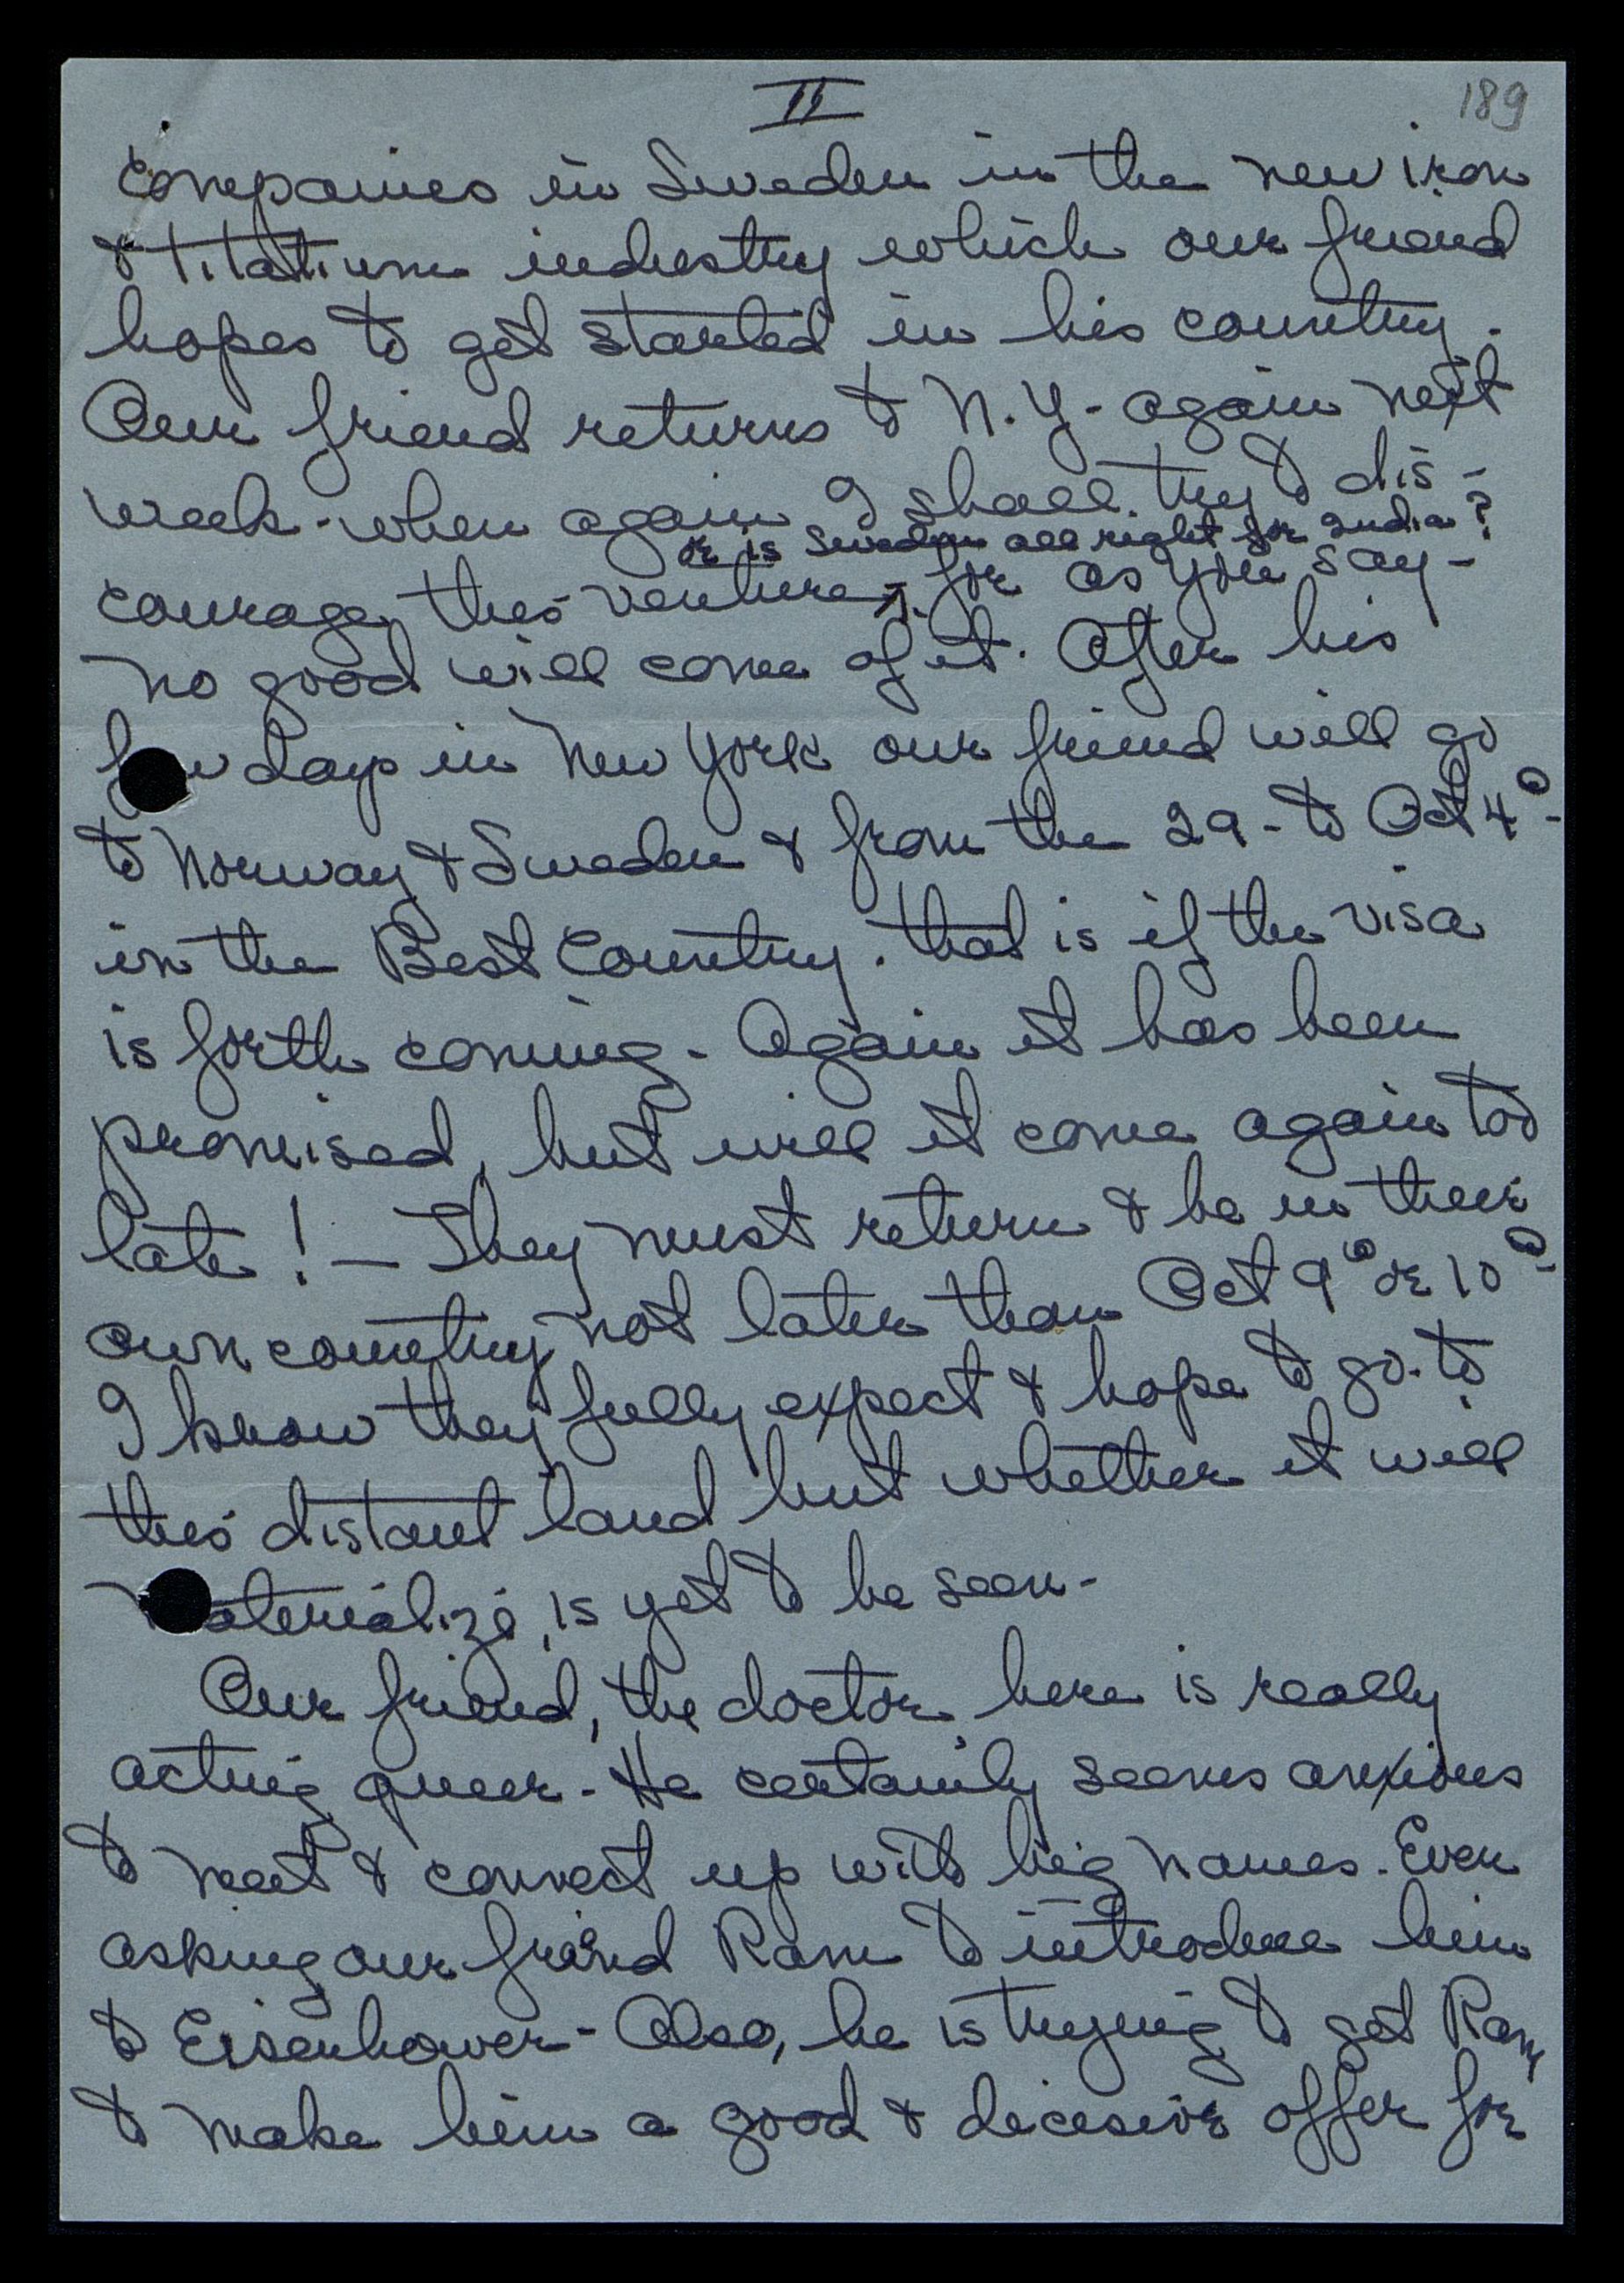 II
189
companies in Sweden in the new iron
& titatium industry which our friend
hopes to get started in his country.
Our friend returns to N.Y- again next
week - when again I shall try to dis-
or is Sweden all right for India?
courage this venture - for as you say -
no good will come of it. After his
few days in New York our friend will go
to Norway & Sweden & from the 29 - to Oct 4° -
in the Best Country. that is if the visa
is forth coming - Again it has been
promised, but will it come again too
late! - They must return & be in their
own country not later than Oct 9° or 10° -
I know they fully expect & hope to go to
this distant land but whether it will
materialize, is yet to be seen -
Our friend, the doctor here is really
acting queer - He certainly seems anxious
to meet & connect up with big names. Even
asking our friend Ram to introduce him
to Eisenhower - Also, he is trying to get Ram
to make him a good & decesive offer for